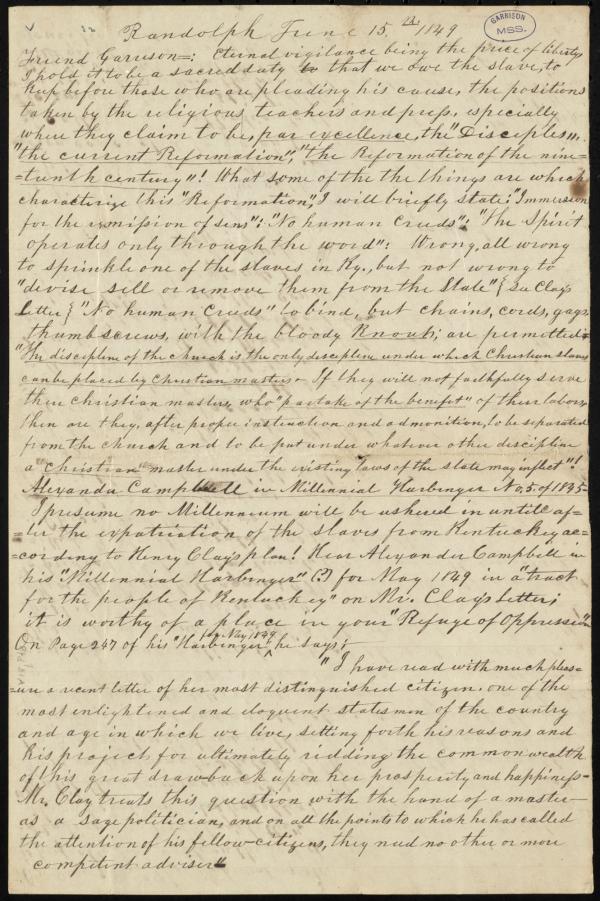 Randolph June 15,th 1849
GARRISON
MSS.
Friend Garrison=: Eternal vigilance being the price of liberty
I hold it to be a sacred duty to that we owe the slave, to
keep before those who are pleading his cause, the positions
taken by the religious teachers and press, especially
where they claim to be, par excellence, the "Disciples",
"the current Reformation", "the Reformation of the nine=
=teenth century"! What some of the the things are which
characterize this "Reformation", I will briefly state: "Immersion
for the remission of sins": "No human Creeds": "The Spirit
operates only through the word": Wrong, all wrong
to sprinkle one of the slaves in Ky., but not wrong to
"devise sell or remove them from the State" { See Clay's
Letter } "No human Creeds" to bind, but chains, cords, gags
thumbscrews, with the bloody Knout; are permitted.
"The discipline of the church is the only discipline under which Christian slaves
can be placed by Christian masters. If they will not faithfully serve
their Christian masters, who "partake of the benefit" of their labors
then are they, after proper instruction and admonition, to be separated
from the church and to be put under whatever other discipline
a Christian master under the existing laws of the state may inflict"!
Alexander Campbell in Millennial Harbinger No, 5. of 1845-
I presume no Millennium will be ushered in untill af=
=ter the expatriation of the slaves from Kentuckey ac=
=cording to Henry Clay's plan! Hear Alexander Campbell in
his "Millennial Harbinger" (?) for May 1849 in a "tract
for the people of Kentuckey" on Mr. Clay's Letter;
it is worthy of a place in your "Refuge of Oppression"
for May 1849
On Page 247 of his "Harbinger" he says;
"I have read with much pleas=
=ure a recent letter of her most distinguished citizen. one of the
most enlightened and eloquent statesmen of the country
and age in which we live, setting forth his reasons and
his project for ultimately ridding the commonwealth
of this great drawback upon her prosperity and happiness-
Mr. Clay treats this question with the hand of a master-
as a sage politician, and on all the points to which he has called
the attention of his fellow-citizens, they need no other or more
competent adviser"